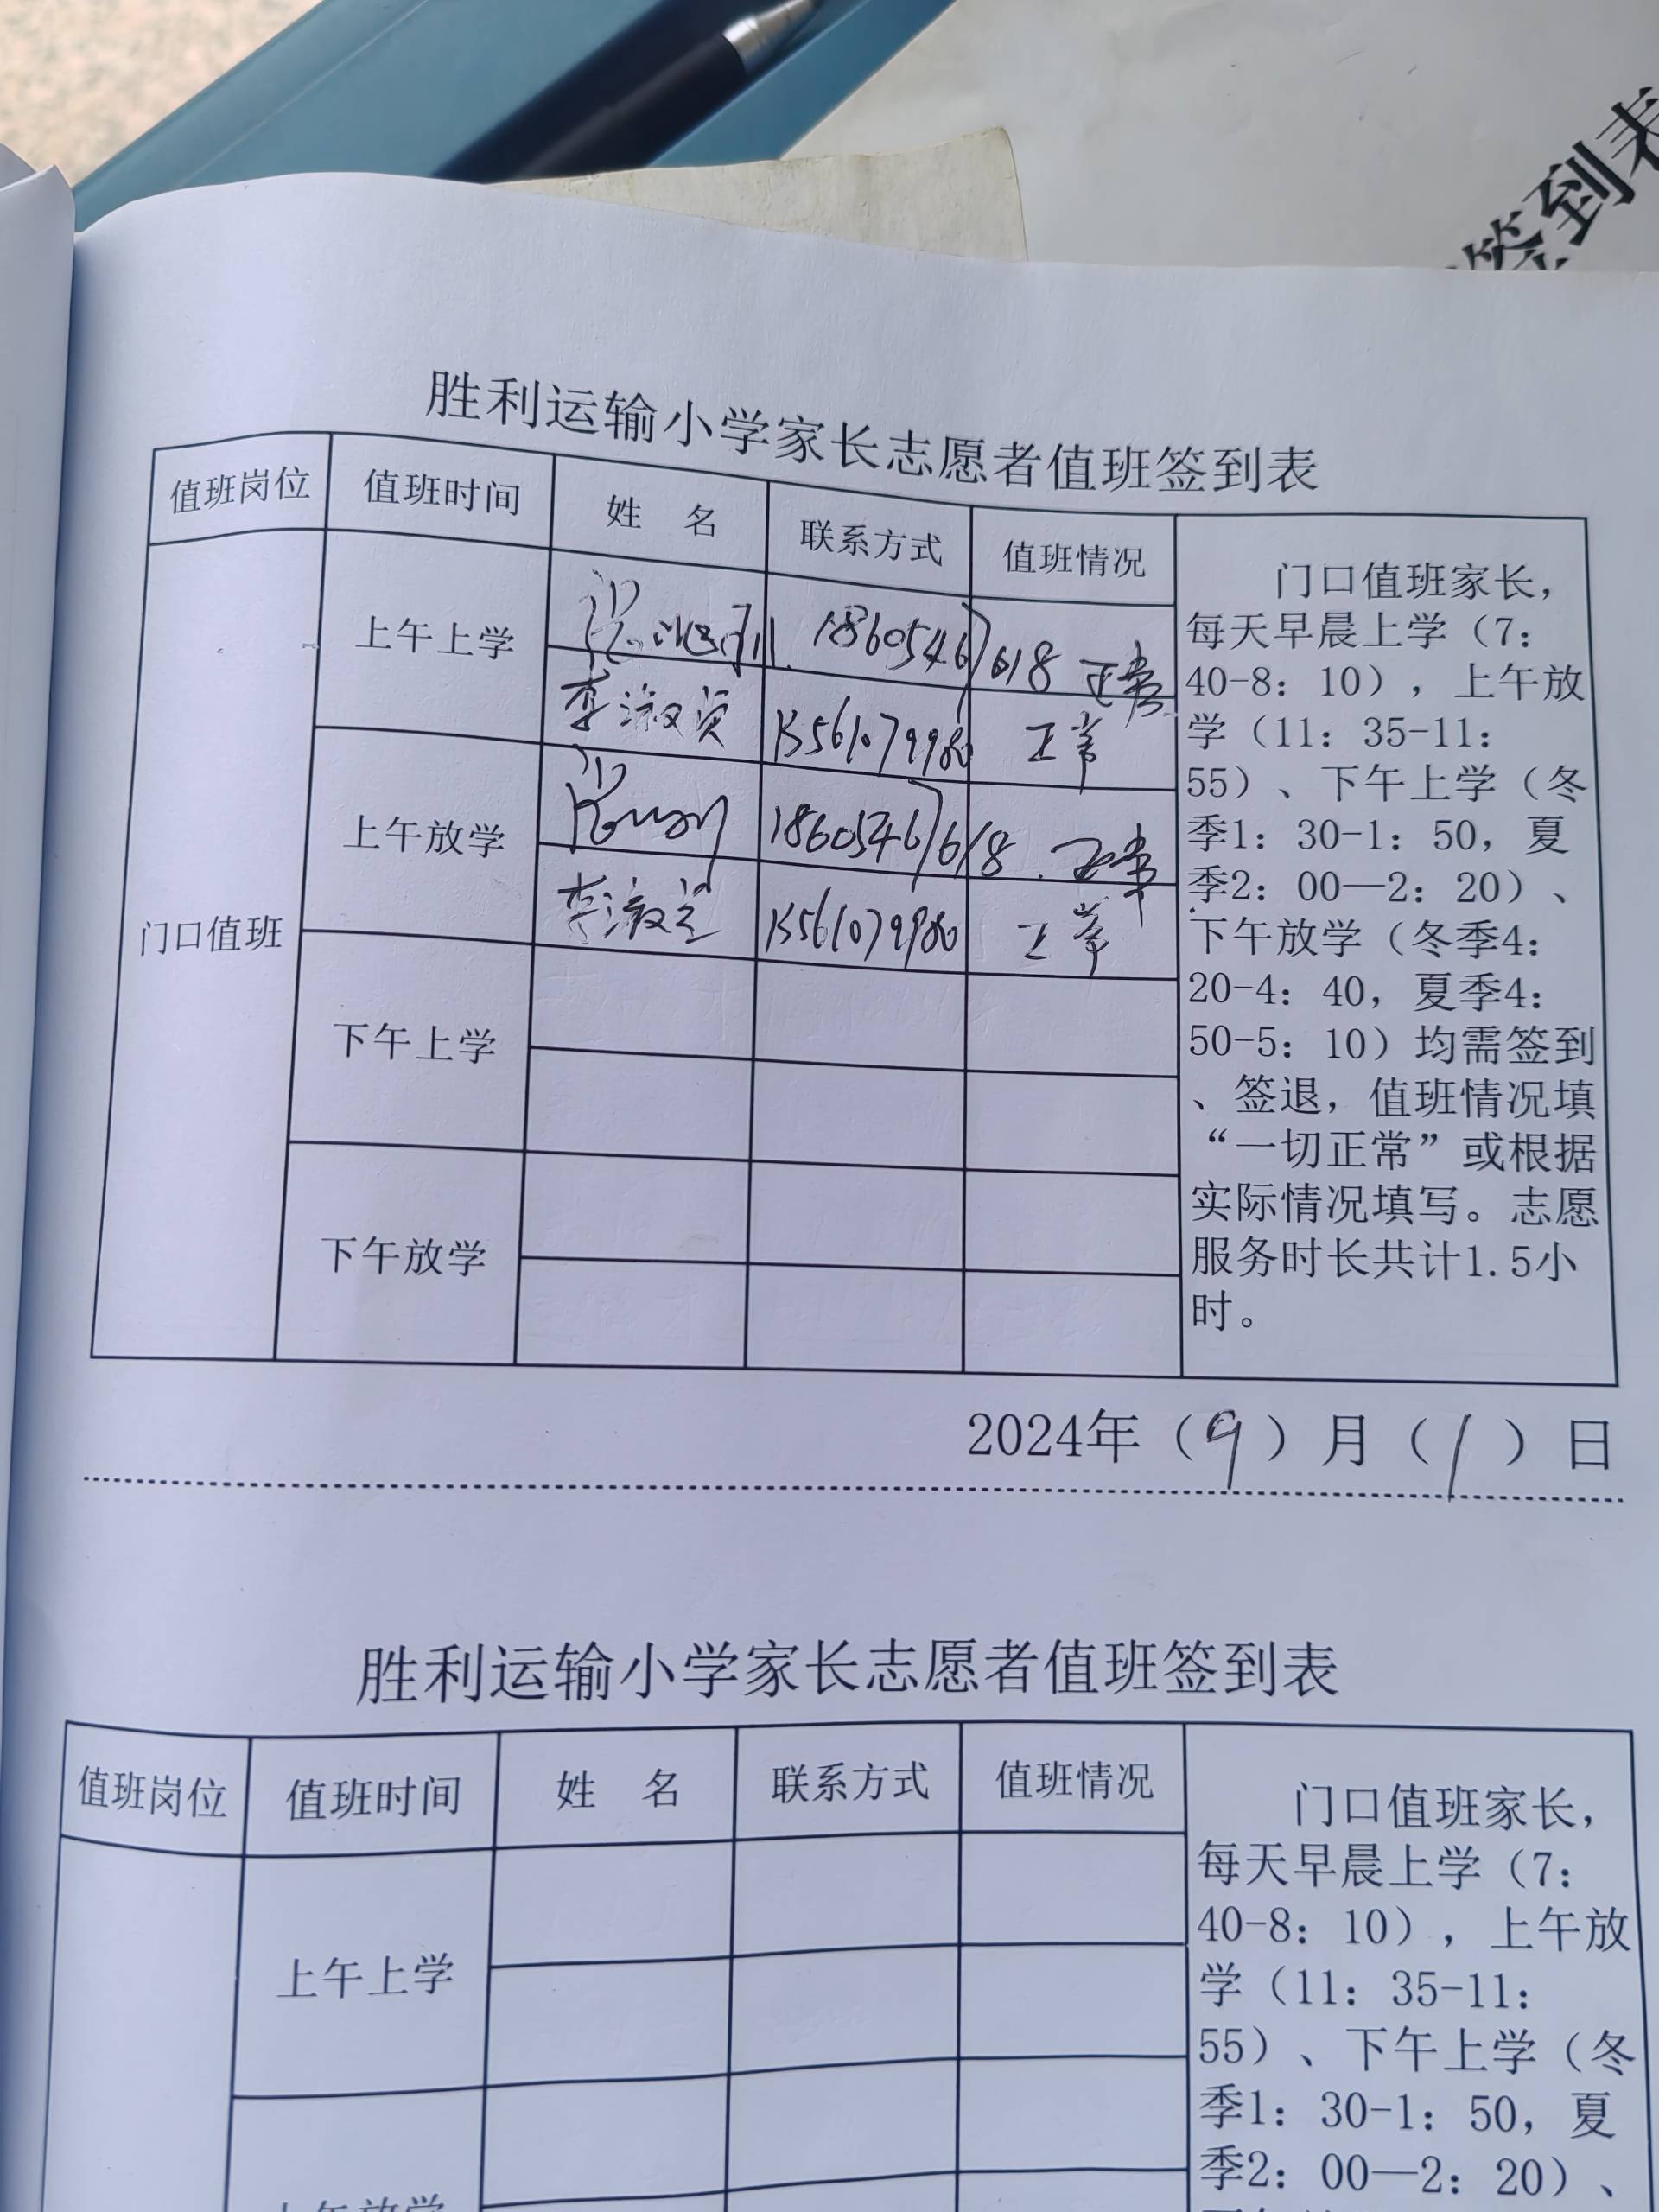 签到表
胜利运输小学家长志愿者值班签到表
值班岗位 值班时间 姓 名 联系方式 值班情况
门口值班
上午上学
18605467618 正常
李淑 13561079980 正常
上午放学
18605467618 正常
李淑 13561079980 正常
下午上学
下午放学
门口值班家长，
每天早晨上学（7：
40-8：10），上午放
学（11：35-11：
55）、下午上学（冬
季1：30-1：50，夏
季2：00—2：20）、
下午放学（冬季4：
20-4：40，夏季4：
50-5：10）均需签到
、签退，值班情况填
“一切正常”或根据
实际情况填写。志愿
服务时长共计1.5小
时。
2024年（9）月（1）日
胜利运输小学家长志愿者值班签到表
值班岗位 值班时间 姓 名 联系方式 值班情况
上午上学
上午放学
门口值班家长，
每天早晨上学（7：
40-8：10），上午放
学（11：35-11：
55）、下午上学（冬
季1：30-1：50，夏
季2：00—2：20）、